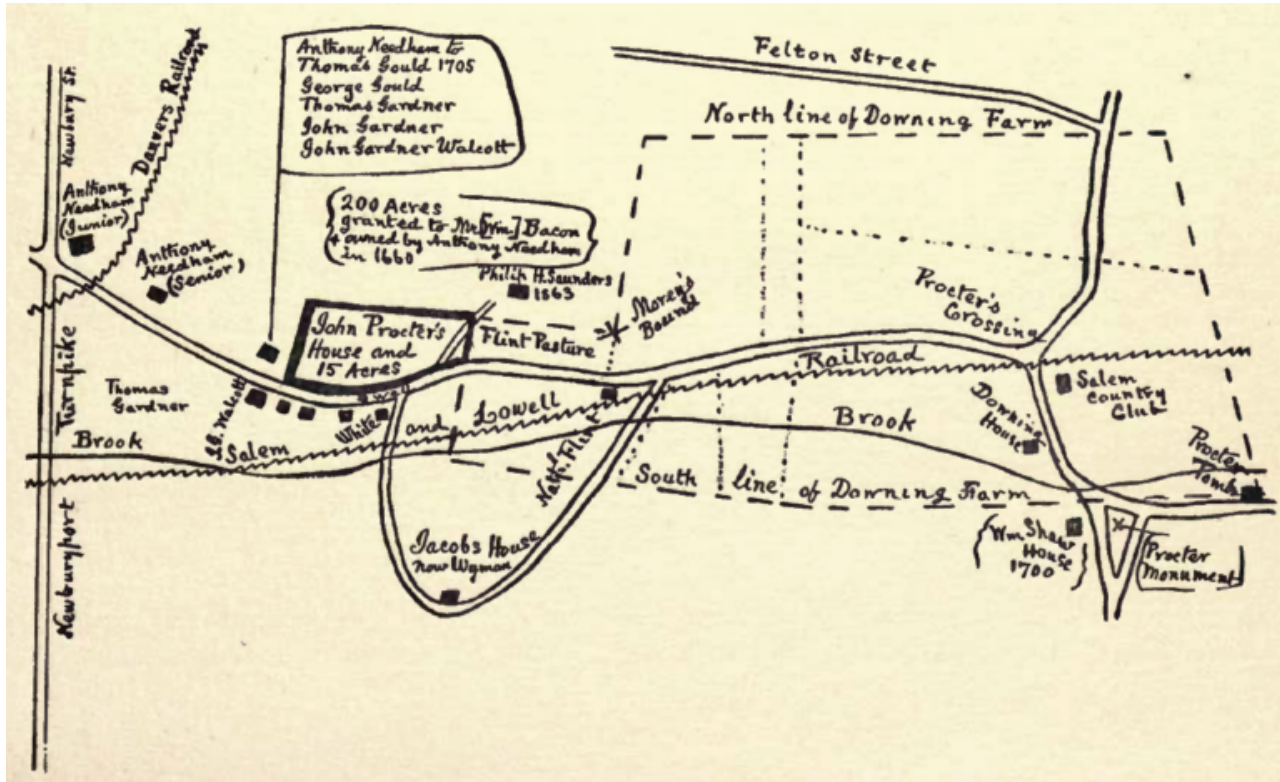 Newbury St.
Danvers Railroad
Anthony Needham to
Thomas Gould 1705
George Gould
Thomas Gardner
John Gardner
John Gardner Walcott
Felton Street
North line of Downing Farm
Anthony
Needham
(Junior)
Anthony
Needham
(Senior)
200 Acres
granted to Mr. [Wm.] Bacon
+ owned by Anthony Needham
in 1660
Philip H. Saunders
1863
Morey's
Bounds
Procter's
Crossing
John Procter's
House and
15 Acres
Flint Pasture
Turnpike
Thomas
Gardner
J.G. Walcott
White
Salem and Lowell Railroad
Salem
Country
Club
Downing
House
Brook
Brook
Nath. Flint
Procter
Tomb
South line of Downing Farm
Newburyport
Jacobs House
now Wyman
Wm Shaw
House
1700
Procter
Monument